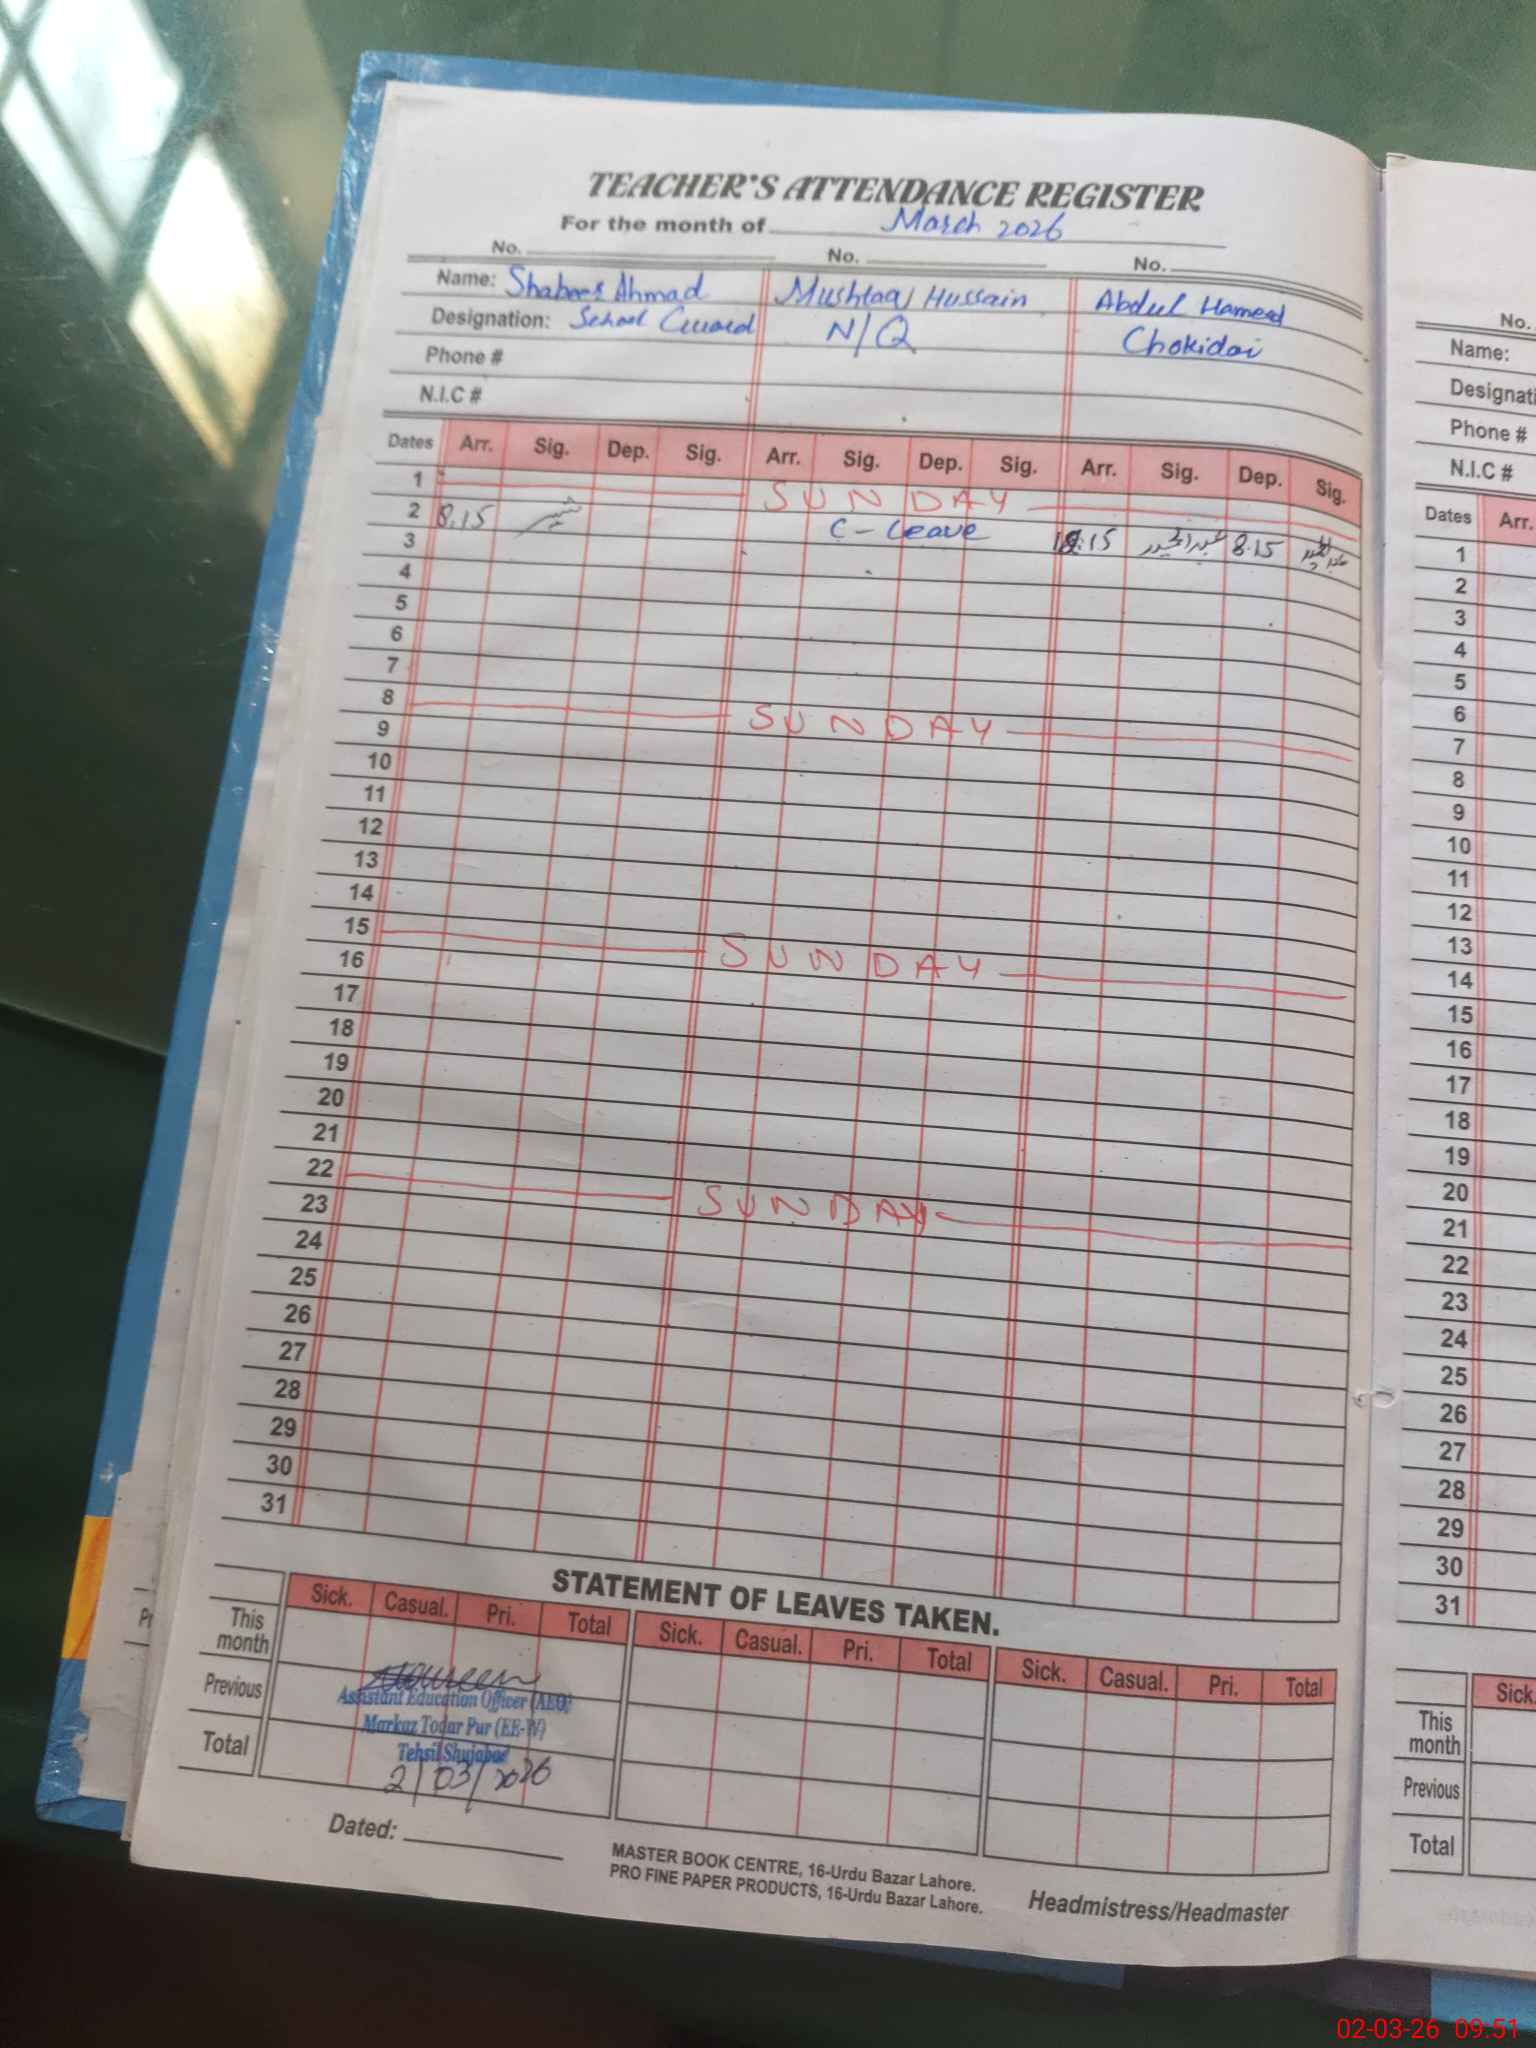 TEACHER'S ATTENDANCE REGISTER
For the month of March 2026
No. No. No.
Name: Shabeer Ahmad Mushtaq Hussain Abdul Hameed
Designation: School Guard N/Q Chokidar
Phone #
N.I.C #
Dates Arr. Sig. Dep. Sig. Arr. Sig. Dep. Sig. Arr. Sig. Dep. Sig.
1 SUNDAY
2 8.15 C-Leave 8:15 عبدالحمید 8.15
3
4
5
6
7
8 SUNDAY
9
10
11
12
13
14
15 SUNDAY
16
17
18
19
20
21
22 SUNDAY
23
24
25
26
27
28
29
30
31
STATEMENT OF LEAVES TAKEN.
Sick. Casual. Pri. Total Sick. Casual. Pri. Total Sick. Casual. Pri. Total
This month
Previous
Total
Assistant Education Officer (AEO)
Markaz Todar Pur (EE-W)
Tehsil Shujabad
2/03/2026
Dated:
MASTER BOOK CENTRE, 16-Urdu Bazar Lahore.
PRO FINE PAPER PRODUCTS, 16-Urdu Bazar Lahore.
Headmistress/Headmaster
No.
Name:
Phone #
N.I.C #
Dates Arr.
1
2
3
4
5
6
7
8
9
10
11
12
13
14
15
16
17
18
19
20
21
22
23
24
25
26
27
28
29
30
31
Sick.
This month
Previous
Total
02-03-26 09:51